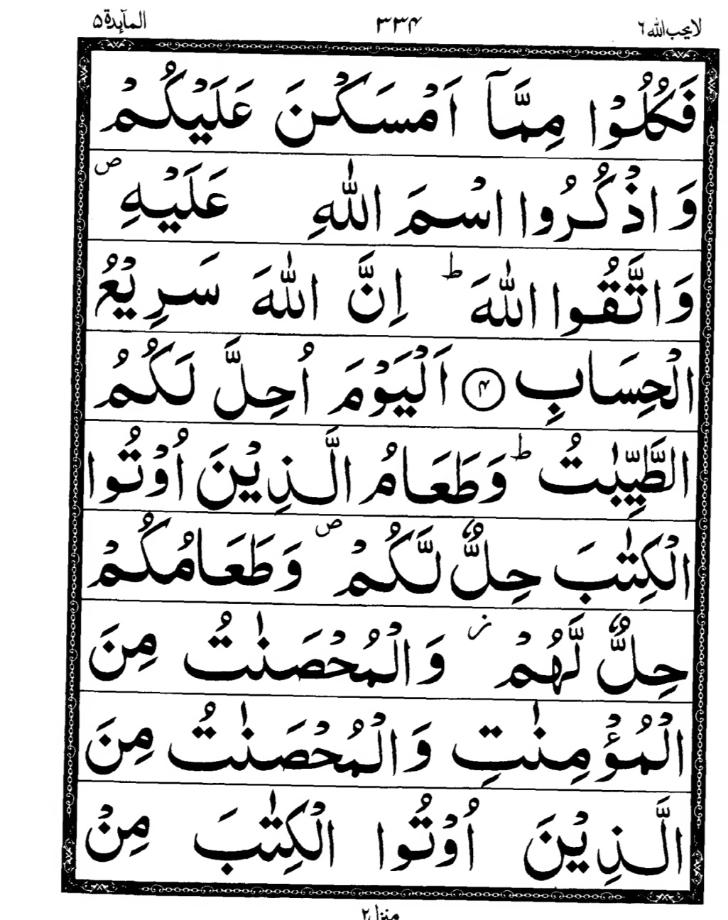 لایحب الله ٦ ٣٣۴ المآىٕدة ۵
فَكُلُوْا مِمَّاۤ اَمْسَكْنَ عَلَیْكُمْ
وَ اذْكُرُوا اسْمَ اللّٰهِ عَلَیْهِ ۪
وَ اتَّقُوا اللّٰهَ ؕ اِنَّ اللّٰهَ سَرِیْعُ
الْحِسَابِ ۴ اَلْیَوْمَ اُحِلَّ لَكُمُ
الطَّیِّبٰتُ ؕ وَ طَعَامُ الَّذِیْنَ اُوْتُوا
الْكِتٰبَ حِلٌّ لَّكُمْ ۪ وَ طَعَامُكُمْ
حِلٌّ لَّهُمْ ؗ وَ الْمُحْصَنٰتُ مِنَ
الْمُؤْمِنٰتِ وَ الْمُحْصَنٰتُ مِنَ
الَّذِیْنَ اُوْتُوا الْكِتٰبَ مِنْ
منزل ٢